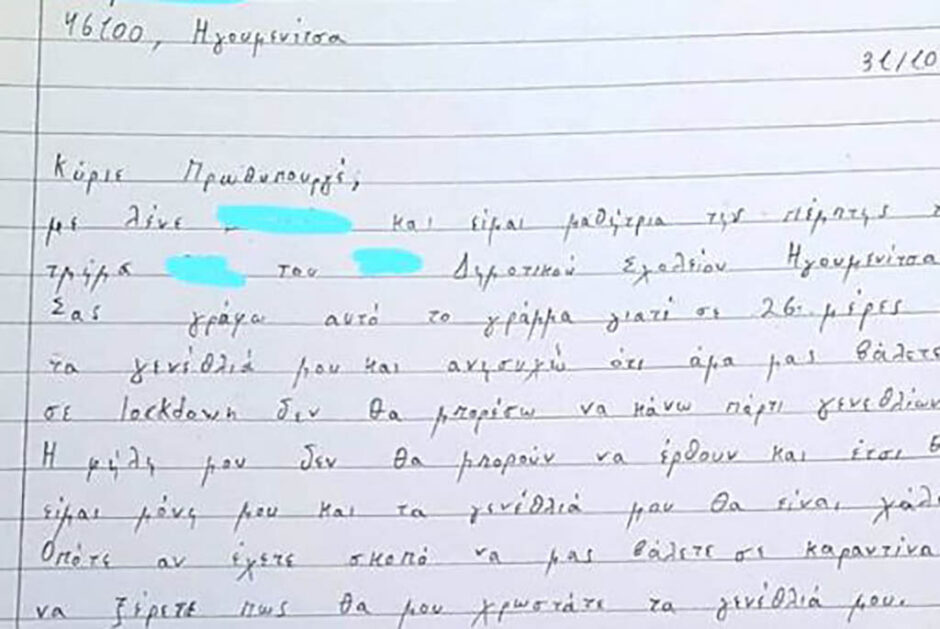 46100, Ηγουμενίτσα
31/10
Κύριε Πρωθυπουργέ,
με λένε και είμαι μαθήτρια της πέμπτης
τμήμα του Δημοτικού Σχολείου Ηγουμενίτσα
Σας γράφω αυτό το γράμμα γιατί σε 26 μέρες
τα γενέθλιά μου και ανησυχώ ότι άμα μας βάλετε
σε lockdown δεν θα μπορέσω να κάνω πάρτι γενεθλίων
Η φήλη μου δεν θα μπορούν να έρθουν και έτσι θ
είμαι μόνη μου και τα γενέθλιά μου θα είναι χάλι
Οπότε αν έχετε σκοπό να μας βάλετε σε καραντίνα
να ξέρετε πως θα μου χρωστάτε τα γενέθλιά μου.